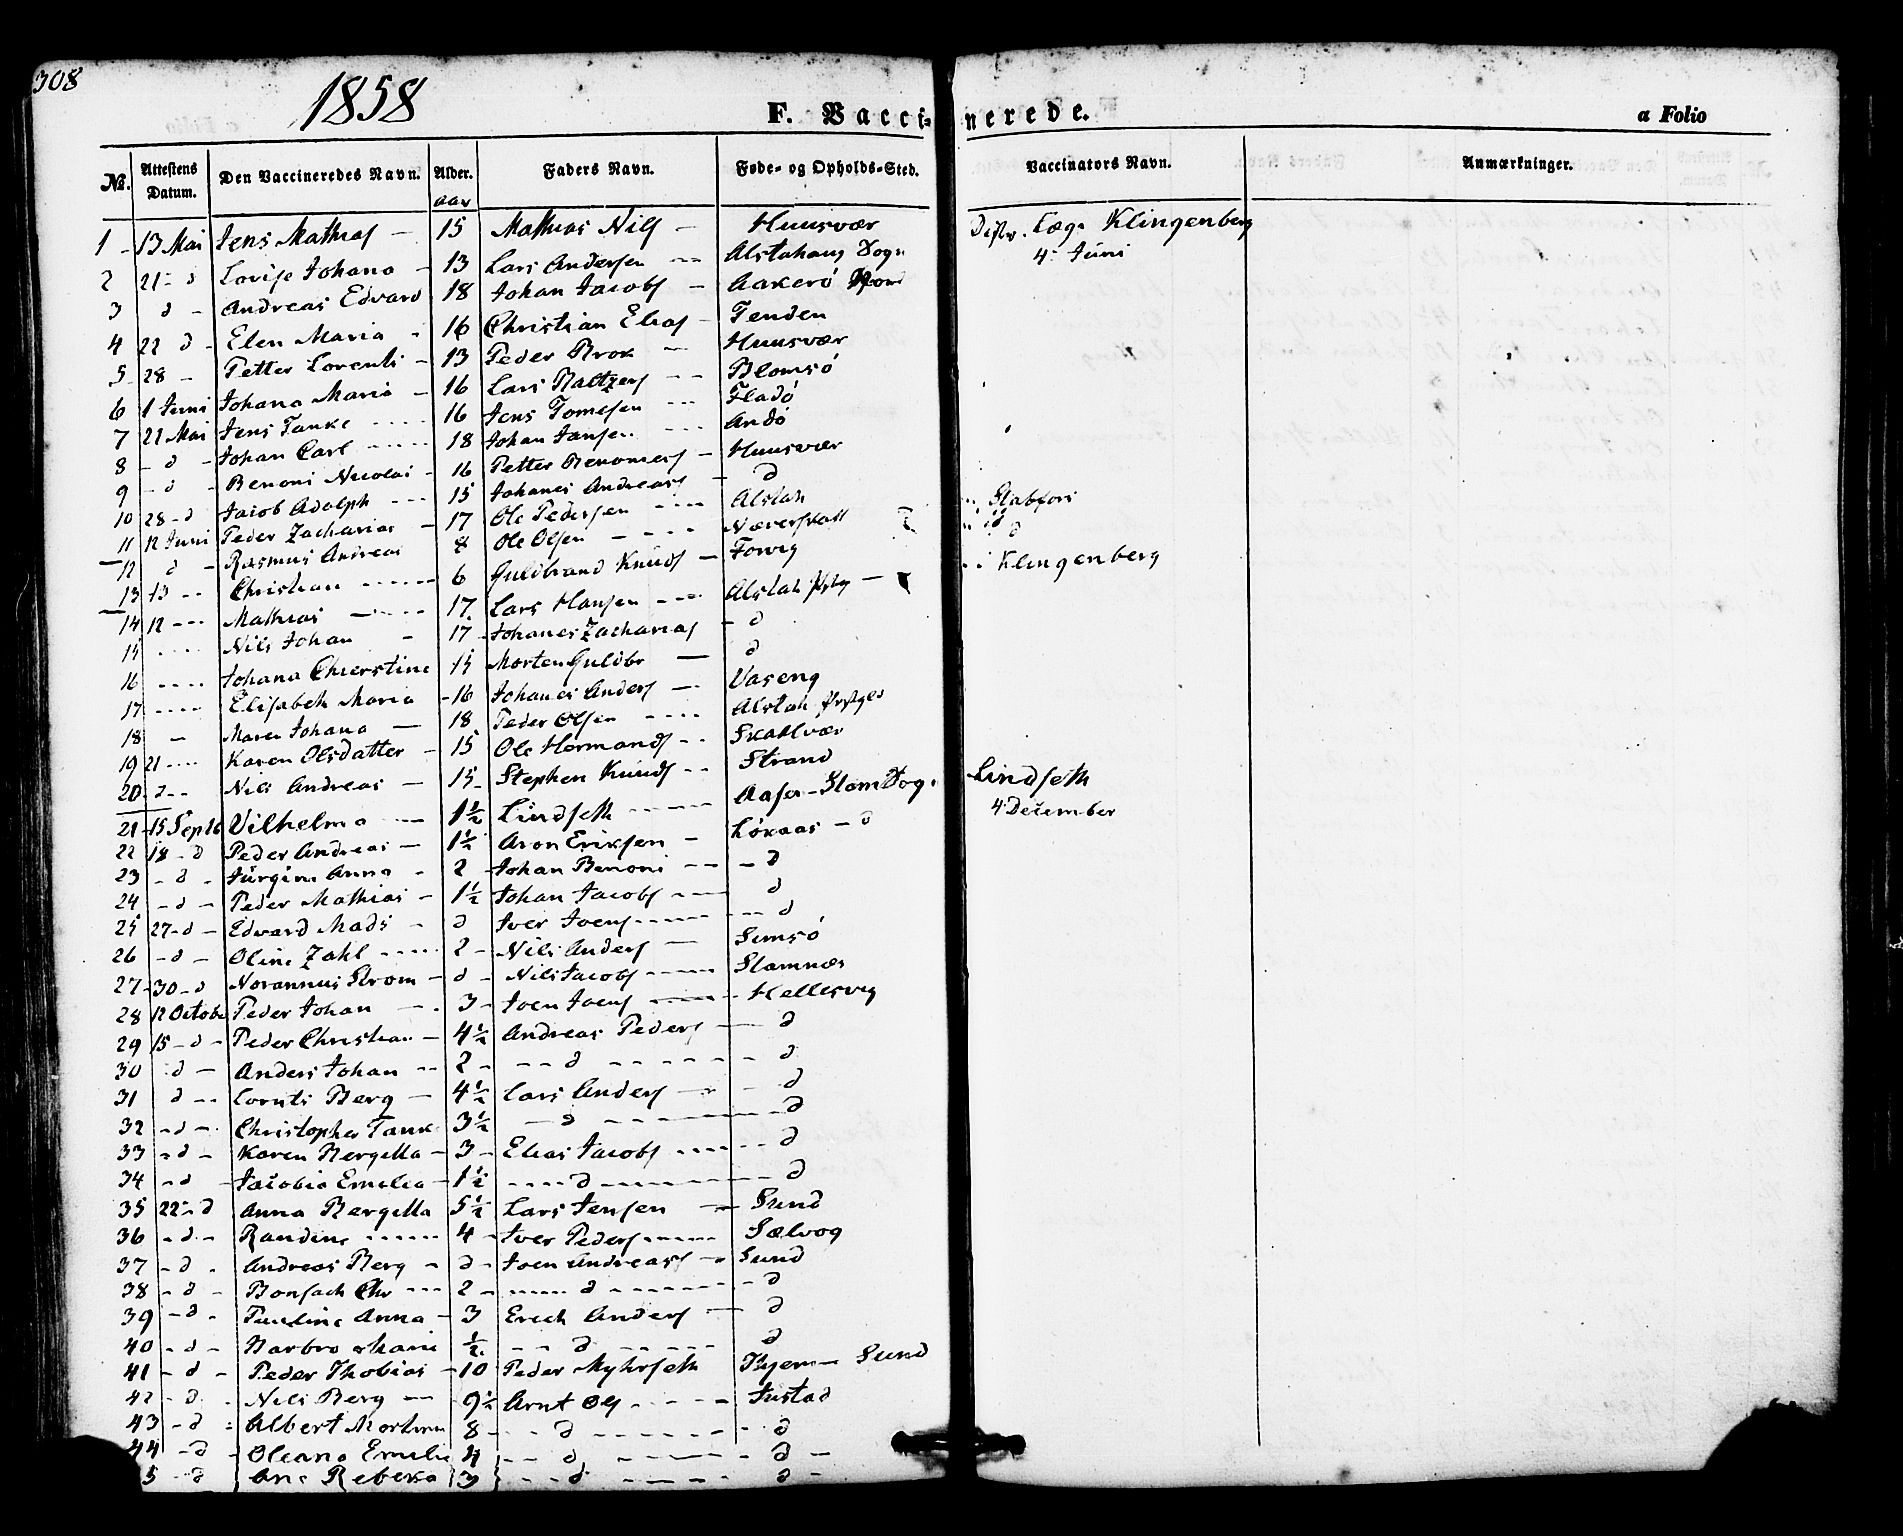 308
1858
F. Vaccinerede.
a Folio
№. Attestens Datum. Den Vaccineredes Navn. Alder. Faders Navn. Føde- og Opholds-Sted. Vaccinators Navn. Anmærkninger.
aar
1 - 13 Mai Jens Mathias - 15 Mathias Nils - Huusvær Distr. Læge Klingenberg
2 21 - d Lovise Johana - 13 Lars Andersen -- Alstahaug Sogn 4 Juni
3 d - Andreas Edvard 18 Johan Jacobs - Aakerö
4 22 d - Elen Maria - 16 Christian Elias - Tenden
5 28 - Petter Lorents - 13 Peder Brok - Huusvær
6 1 Juni Johana Maria - 16 Lars Baltzers -- Blomsö
7 21 Mai Jens Tanke ---- 16 Jens Tomesen --- Fladö
8 - d - Johan Carl ----- 18 Johan Jansen --- Andö
9 - d - Benoni Nicolai - 16 Petter Benonies - Huusvær
10 28 - d Jacob Adolph --- 15 Johanes Andreas - d
11 12 Juni Peder Zacharias - 17 Ole Pedersen ---- Alstah
12 d - Rasmus Andreas 8 Ole Olsen - --- Næverskall d
13 13 -- Christian ------ 6 Guldbrand Knuds - Forvig - - Klingenberg
14 12 --- Mathias ----- 17 Lars Hansen --- Alstah -
15 ---- Nils Johan - 17 - Johanes Zacharias - d
16 ---- Johana Chierstine 15 Morten Guldbr - d
17 ---- Elisabeth Maria - 16 Johanes Anders - Vaseng
18 - Maren Johana - 18 Peder Olsen ---- Alstah
19 21 ---- Karen Olsdatter - 15 Ole Hermands -- Skallvær
20 d -- Nils Andreas - 15 - Stephen Knuds -- Strand
21 - 15 Septb Vilhelma -- 1½ Lindseth ----- Stamsog Lindseth
22 18 - d Peder Andreas - 1½ Aron Eriksen - Lökaas - d 4 December
23 - d - Jürgine Anna - 2 - Johan Benoni -- - d
24 - d - Peder Mathias - 1½ Johan Jacobs ---- d
25 27 - d - Edvard Mads - d Iver Joens ------ -- d
26 - d - Oline Zahl ----- 2 - Nils Anders - Semsö
27 - 30 - d Norannus Strom - d - Nils Jacobs ----- Stamnæs
28 12 Octobr Peder Johan - - 3 - Joen Joens ----- Hellesvig
29 15 - d - Peder Christian - 4½ Andreas Peders - d
30 d - Anders Johan -- 2 - -- d ------ - d
31 d -- Cornts Berg - 4½ Lars Anders - - d
32 - d - Christopher Tank 3½ - d ------- d
33 - d - Karen Bergitta - 3 - Elias Jacobs ----- -- d
34 - d - Jacobia Emelia - 1½ ---- d ------- - d
35 22 - d Anna Bergitta 5½ Lars Jensen -- Sund
36 - d - Randine ------ 4 - Iver Peders ------ Sælvog
37 - d - Andreas Berg - d - Joen Andreas - Sund
38 - d - Bonsach Chr --- 2 - ----- d ------- - d
39 - d - Pauline Anna - 3 Erich Anders - d
40 - d - Barbro Marie ½ -- d ----- d
41 - d - Peder Thobias - 10 Peder Myhrseth Sund
42 - d - Nils Berg - 9½ Arnt Ols ----- Justad
43 - d - Albert Morten 8 - - d ------- - d
44 - d - Oleana Emelie 4 -- d ----- - d -
5 - d Ane Rebeka 3 --- d ------ d -